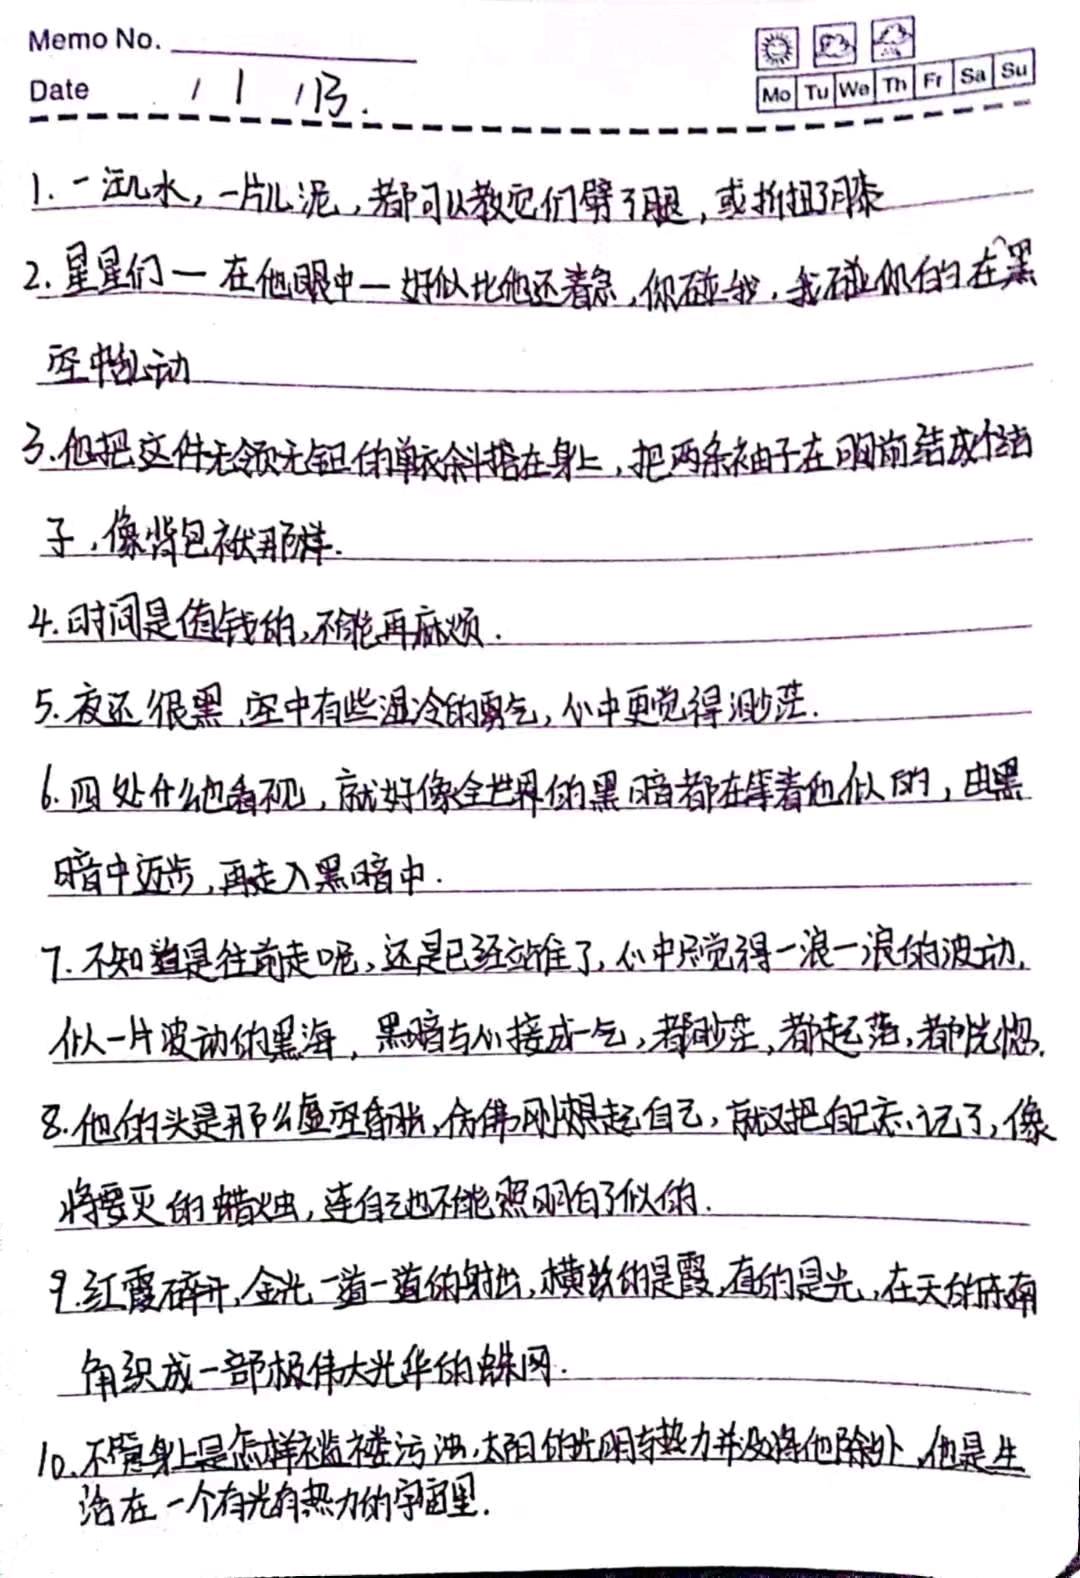 Memo No.
Mo Tu We Th Fr Sa Su
Date / 1 / 13.
1. 一汪儿水，一片儿泥，都可以教它们劈了腿，或折扭了膝
2. 星星们一在他眼中一好似比他还着急，你碰我，我碰你的在黑
空中乱动
3. 他把这件无领无钮的单衣斜搭在身上，把两条袖子在胸前结成个结
子，像背包袱那样.
4. 时间是值钱的，不能再麻烦.
5. 夜还很黑，空中有些湿冷的雾气，心中更觉得渺茫.
6. 四处什么也看不见，就好像全世界的黑暗都在等着他似的，由黑
暗中迈步，再走入黑暗中.
7. 不知道是往前走呢，还是已经站住了，心中只觉得一浪一浪的波动，
似一片波动的黑海，黑暗与心接成一气，都渺茫，都起落，都恍惚.
8. 他的头是那么虚空昏胀，仿佛刚想起自己，就又把自己忘记了，像
将要灭的蜡烛，连自己也不能照明白了似的.
9. 红霞碎开，金光一道一道的射出，横的是霞，直的是光，在天的东南
角织成一部极伟大光华的蛛网.
10. 不管身上是怎样褴褛污浊，太阳的光明与热力并没将他除外，他是生
活在一个有光有热力的宇宙里.